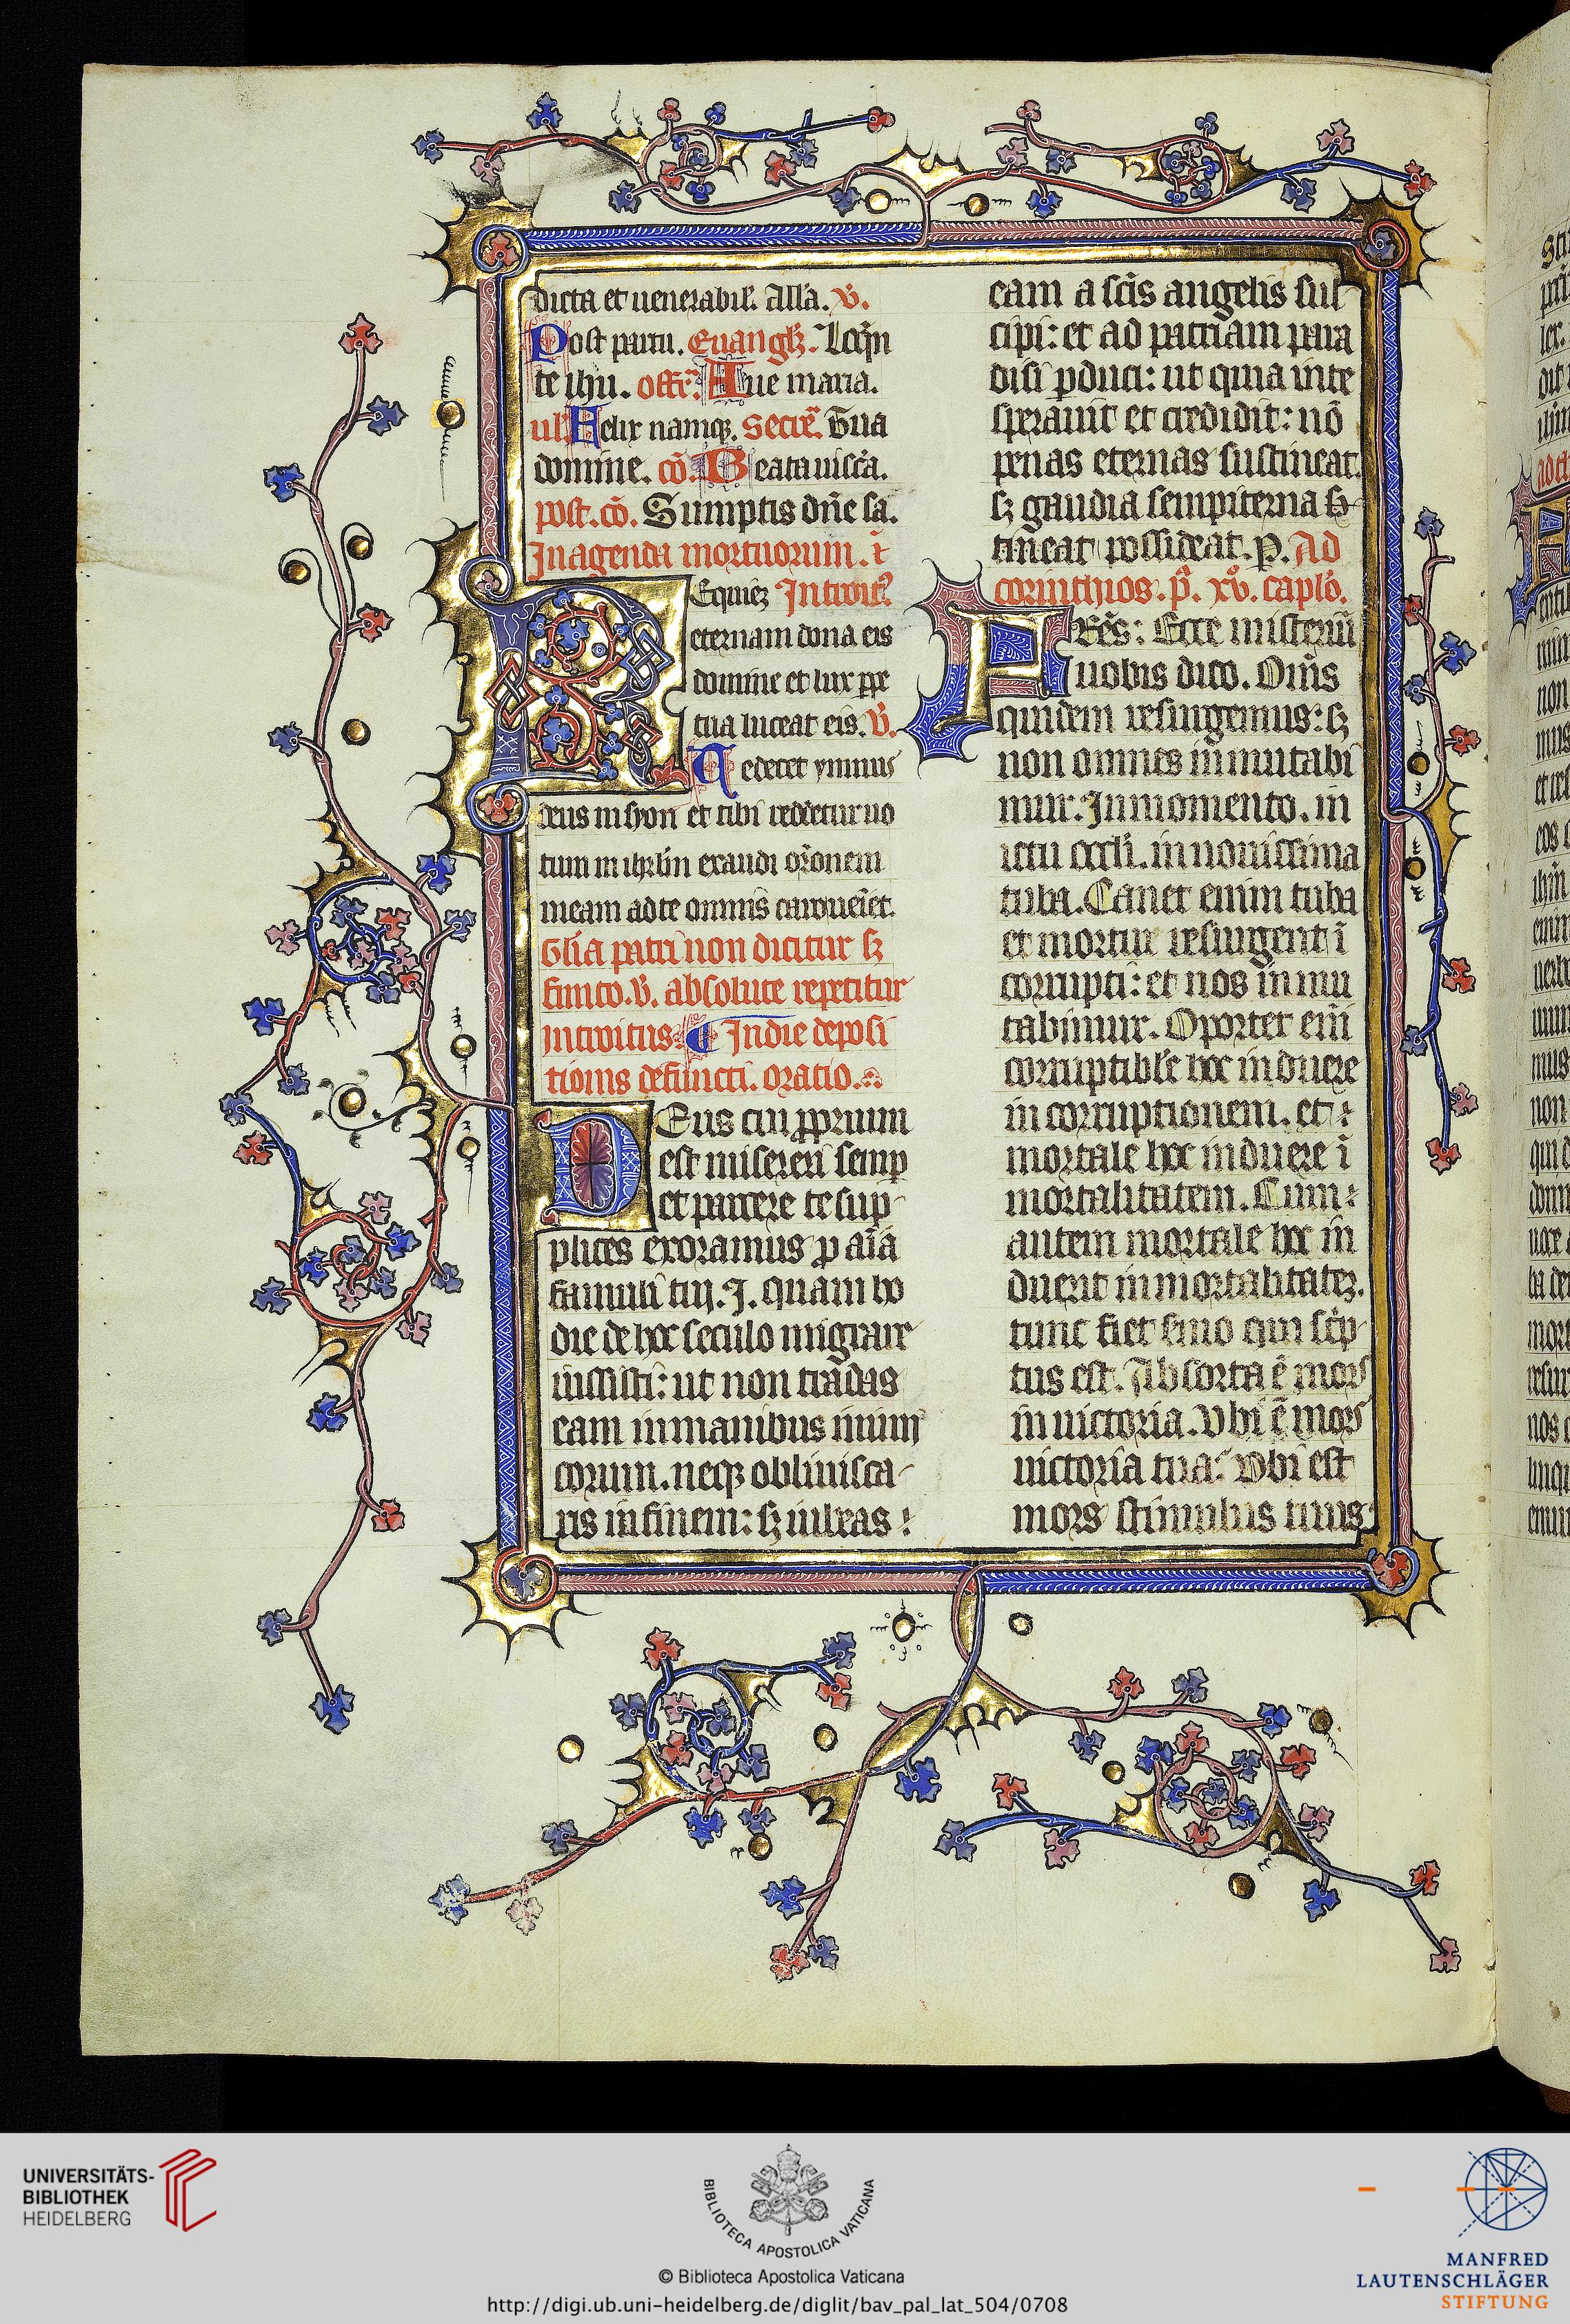 dicta et uenerabil̅. All̅a. v̅.
Post partu̅. Euangl̅ꝫ. Loq̅n
te ihu̅. offr̅. Aue maria.
ul̅ Felix namqꝫ. Secre̅. Tua
domine. co̅. Beata uisce̅a.
post. co̅. Sumptis dn̅e sa.
In agenda mortuorum. i̅
Equie̅ꝫ Introit9
eternam dona eis
domine et lux ꝑpe
tua luceat eis. v̅.
Te decet ymnus
deus in syon et tibi reddetur uo
tum in ihrl̅m exaudi or̅onem
meam ad te omnis caro uei̅et.
Gl̅ia patri non dicitur sꝫ
finito. v̅. absolute repetitur
introitus. In die deposi
tionis defuncti. oratio.
DEus cui ꝓprium
est misereri semꝑ
et parcere te sup
plices exoramus ꝑ ai̅a
famuli tui. I. quam ho
die de hoc seculo migrare
iussisti: ut non tradas
eam in manibus inimi
corum. neqꝫ obliuisca
ris in finem: sꝫ iubeas
eam a sc̅is angelis sus
cipi: et ad patriam para
disi ꝑduci: ut quia in te
sperauit et credidit: no̅
penas eternas sustineat.
sꝫ gaudia sempiterna s
tineat possideat. ꝑ. Ad
corinthios. p̊. xv̊. caplo̅.
FRe̅s: Ecce misteriu̅
uobis dico. Om̅s
quidem resurgemus: sꝫ
non omnes inmutabi
mur. In momento. in
ictu occli̅. in nouissima
tuba. Canet enim tuba
et mortui resurgent i̅
corrupti: et nos inmu
tabimur. Oportet eni̅
corruptibl̅e hoc induere
in corruptionem. et
mortale hoc induere i̅
mortalitatem. Cum
autem mortale hoc in
duerit inmortalitateꝫ.
tunc fiet sermo qui sc̅p
tus est. Absorta e̅ mors
in uictoria. Vbi e̅ mors
uictoria tua? Vbi est
mors stimulus tuus
UNIVERSITÄTS-
BIBLIOTHEK
HEIDELBERG
BIBLIOTECA APOSTOLICA VATICANA
© Biblioteca Apostolica Vaticana
http://digi.ub.uni-heidelberg.de/diglit/bav_pal_lat_504/0708
MANFRED
LAUTENSCHLÄGER
STIFTUNG